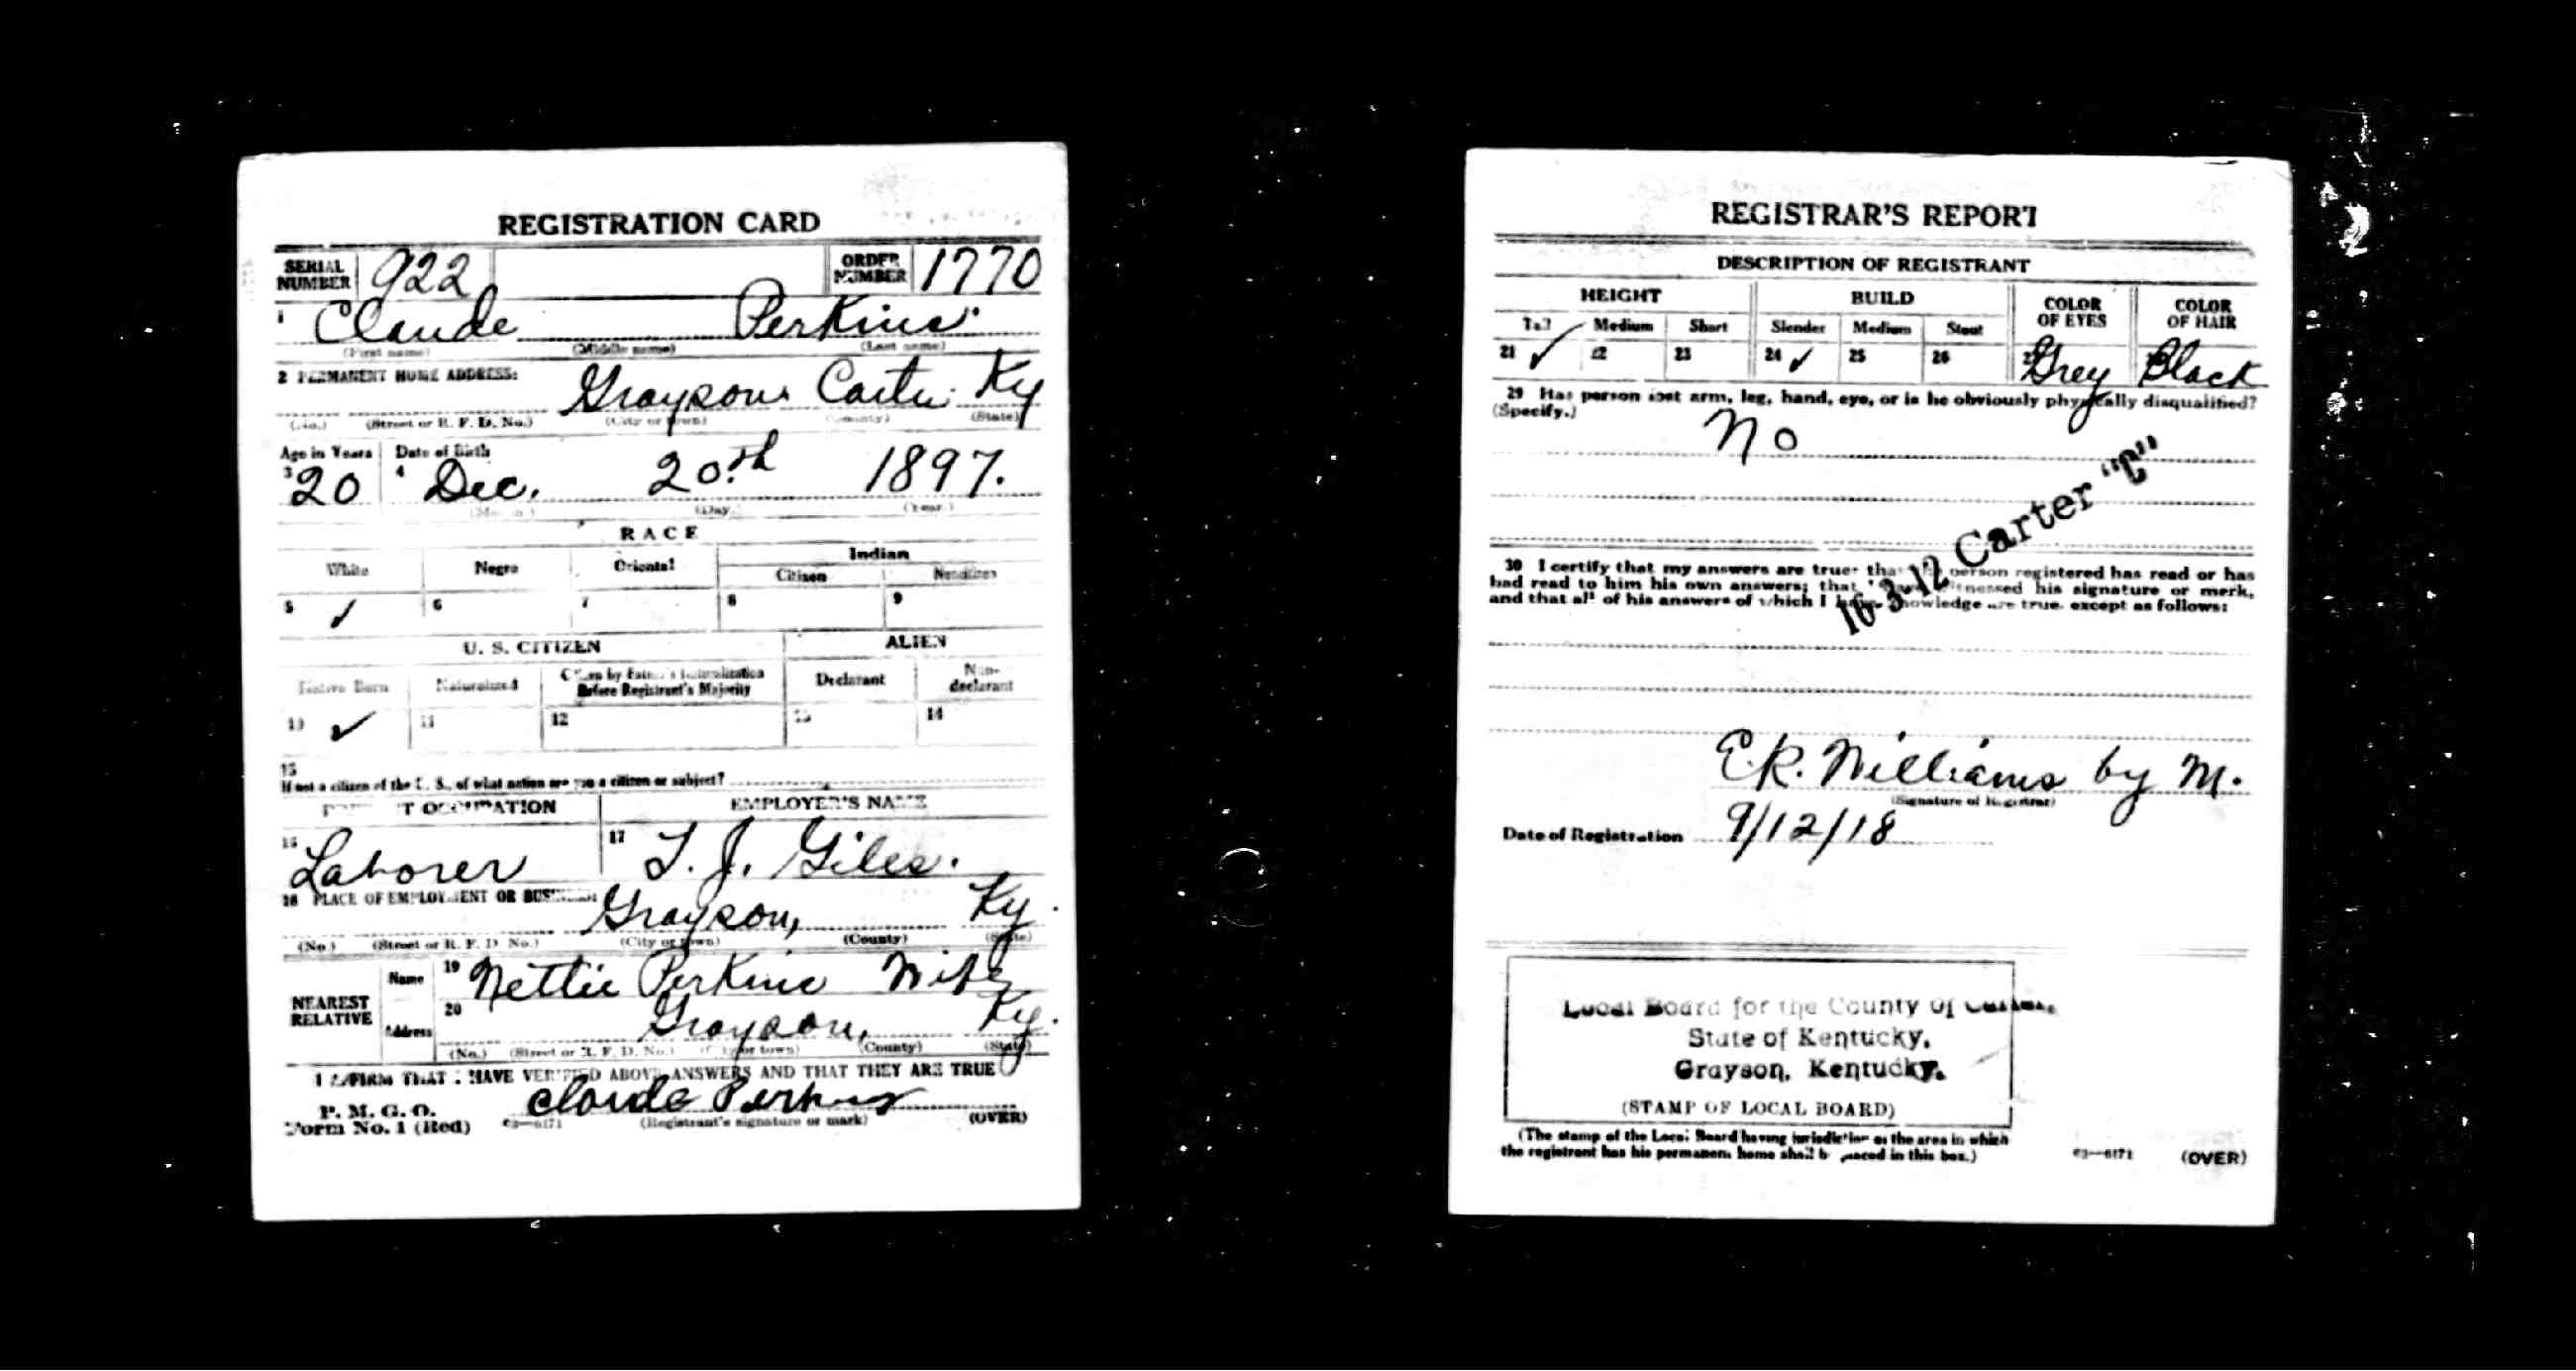 REGISTRATION CARD
SERIAL NUMBER 922 ORDER NUMBER 1770
1 Claude Perkins
(First name) (Middle name) (Last name)
2 PERMANENT HOME ADDRESS:
Grayson Carter Ky
(No.) (Street or R. F. D. No.) (City or town) (County) (State)
Age in Years Date of Birth
3 20 4 Dec. 20th 1897.
(Month) (Day) (Year)
RACE
White Negro Oriental Indian
Citizen Noncitizen
5 ✓ 6 7 8 9
U. S. CITIZEN ALIEN
Native Born Naturalized Citizen by Father's Naturalization Before Registrant's Majority Declarant Non-declarant
10 ✓ 11 12 13 14
15
If not a citizen of the U. S., of what nation are you a citizen or subject?
PRESENT OCCUPATION EMPLOYER'S NAME
16 Laborer 17 T. J. Giles.
18 PLACE OF EMPLOYMENT OR BUSINESS:
Grayson, Ky.
(No.) (Street or R. F. D. No.) (City or town) (County) (State)
NEAREST RELATIVE
Name 19 Nettie Perkins Wife
Address 20 Grayson, Ky.
(No.) (Street or R. F. D. No.) (City or town) (County) (State)
I AFFIRM THAT I HAVE VERIFIED ABOVE ANSWERS AND THAT THEY ARE TRUE
P. M. G. O.
Form No. 1 (Red) 03—6171 Claude Perkins (OVER)
(Registrant's signature or mark)
REGISTRAR'S REPORT
DESCRIPTION OF REGISTRANT
HEIGHT BUILD COLOR OF EYES COLOR OF HAIR
Tall Medium Short Slender Medium Stout
21 ✓ 22 23 24 ✓ 25 26 27 Grey Black
29 Has person lost arm, leg, hand, eye, or is he obviously physically disqualified?
(Specify.)
No
16-3-12 Carter "C"
30 I certify that my answers are true; that the person registered has read or has
had read to him his own answers; that I have witnessed his signature or mark,
and that all of his answers of which I have knowledge are true, except as follows:
E.R. Williams by M.
(Signature of Registrar)
Date of Registration 9/12/18
Local Board for the County of Carter,
State of Kentucky,
Grayson, Kentucky.
(STAMP OF LOCAL BOARD)
(The stamp of the Local Board having jurisdiction of the area in which
the registrant has his permanent home shall be placed in this box.)
03—6171 (OVER)